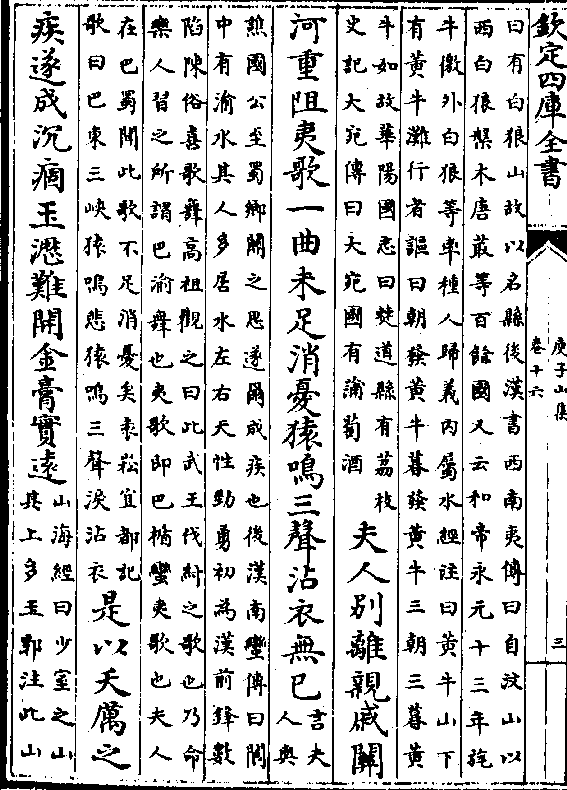 欽定四庫全書
庾子山集
卷十六
三
曰有白狼山故以名縣後漢書西南夷傳曰自汶山以
西白狼槃木唐菆等百餘國又云和帝永元十三年旄
牛徼外白狼等率種人歸義内屬水經注曰黄牛山下
有黄牛灘行者謳曰朝發黄牛暮發黄牛三朝三暮黄
牛如故華陽國志曰僰道縣有荔枝
史記大宛傳曰大宛國有蒲萄酒
夫人别離親戚關
河重阻夷歌一曲未足消憂猿鳴三聲沾衣無已
言夫
人與
譙國公至蜀鄉關之思遂爾成疾也後漢南蠻傳曰閬
中有渝水其人多居水左右天性勁勇初為漢前鋒數
陷陳俗喜歌舞高祖觀之曰此武王伐紂之歌也乃命
樂人習之所謂巴渝舞也夷歌即巴楯蠻夷歌也夫人
在巴蜀聞此歌不足消憂矣袁崧宜都記
歌曰巴東三峽猿鳴悲猿鳴三聲淚沾衣
是以夭厲之
疾遂成沉痼玉瀝難開金膏實遠
山海經曰少室之山
其上多玉郭注此山